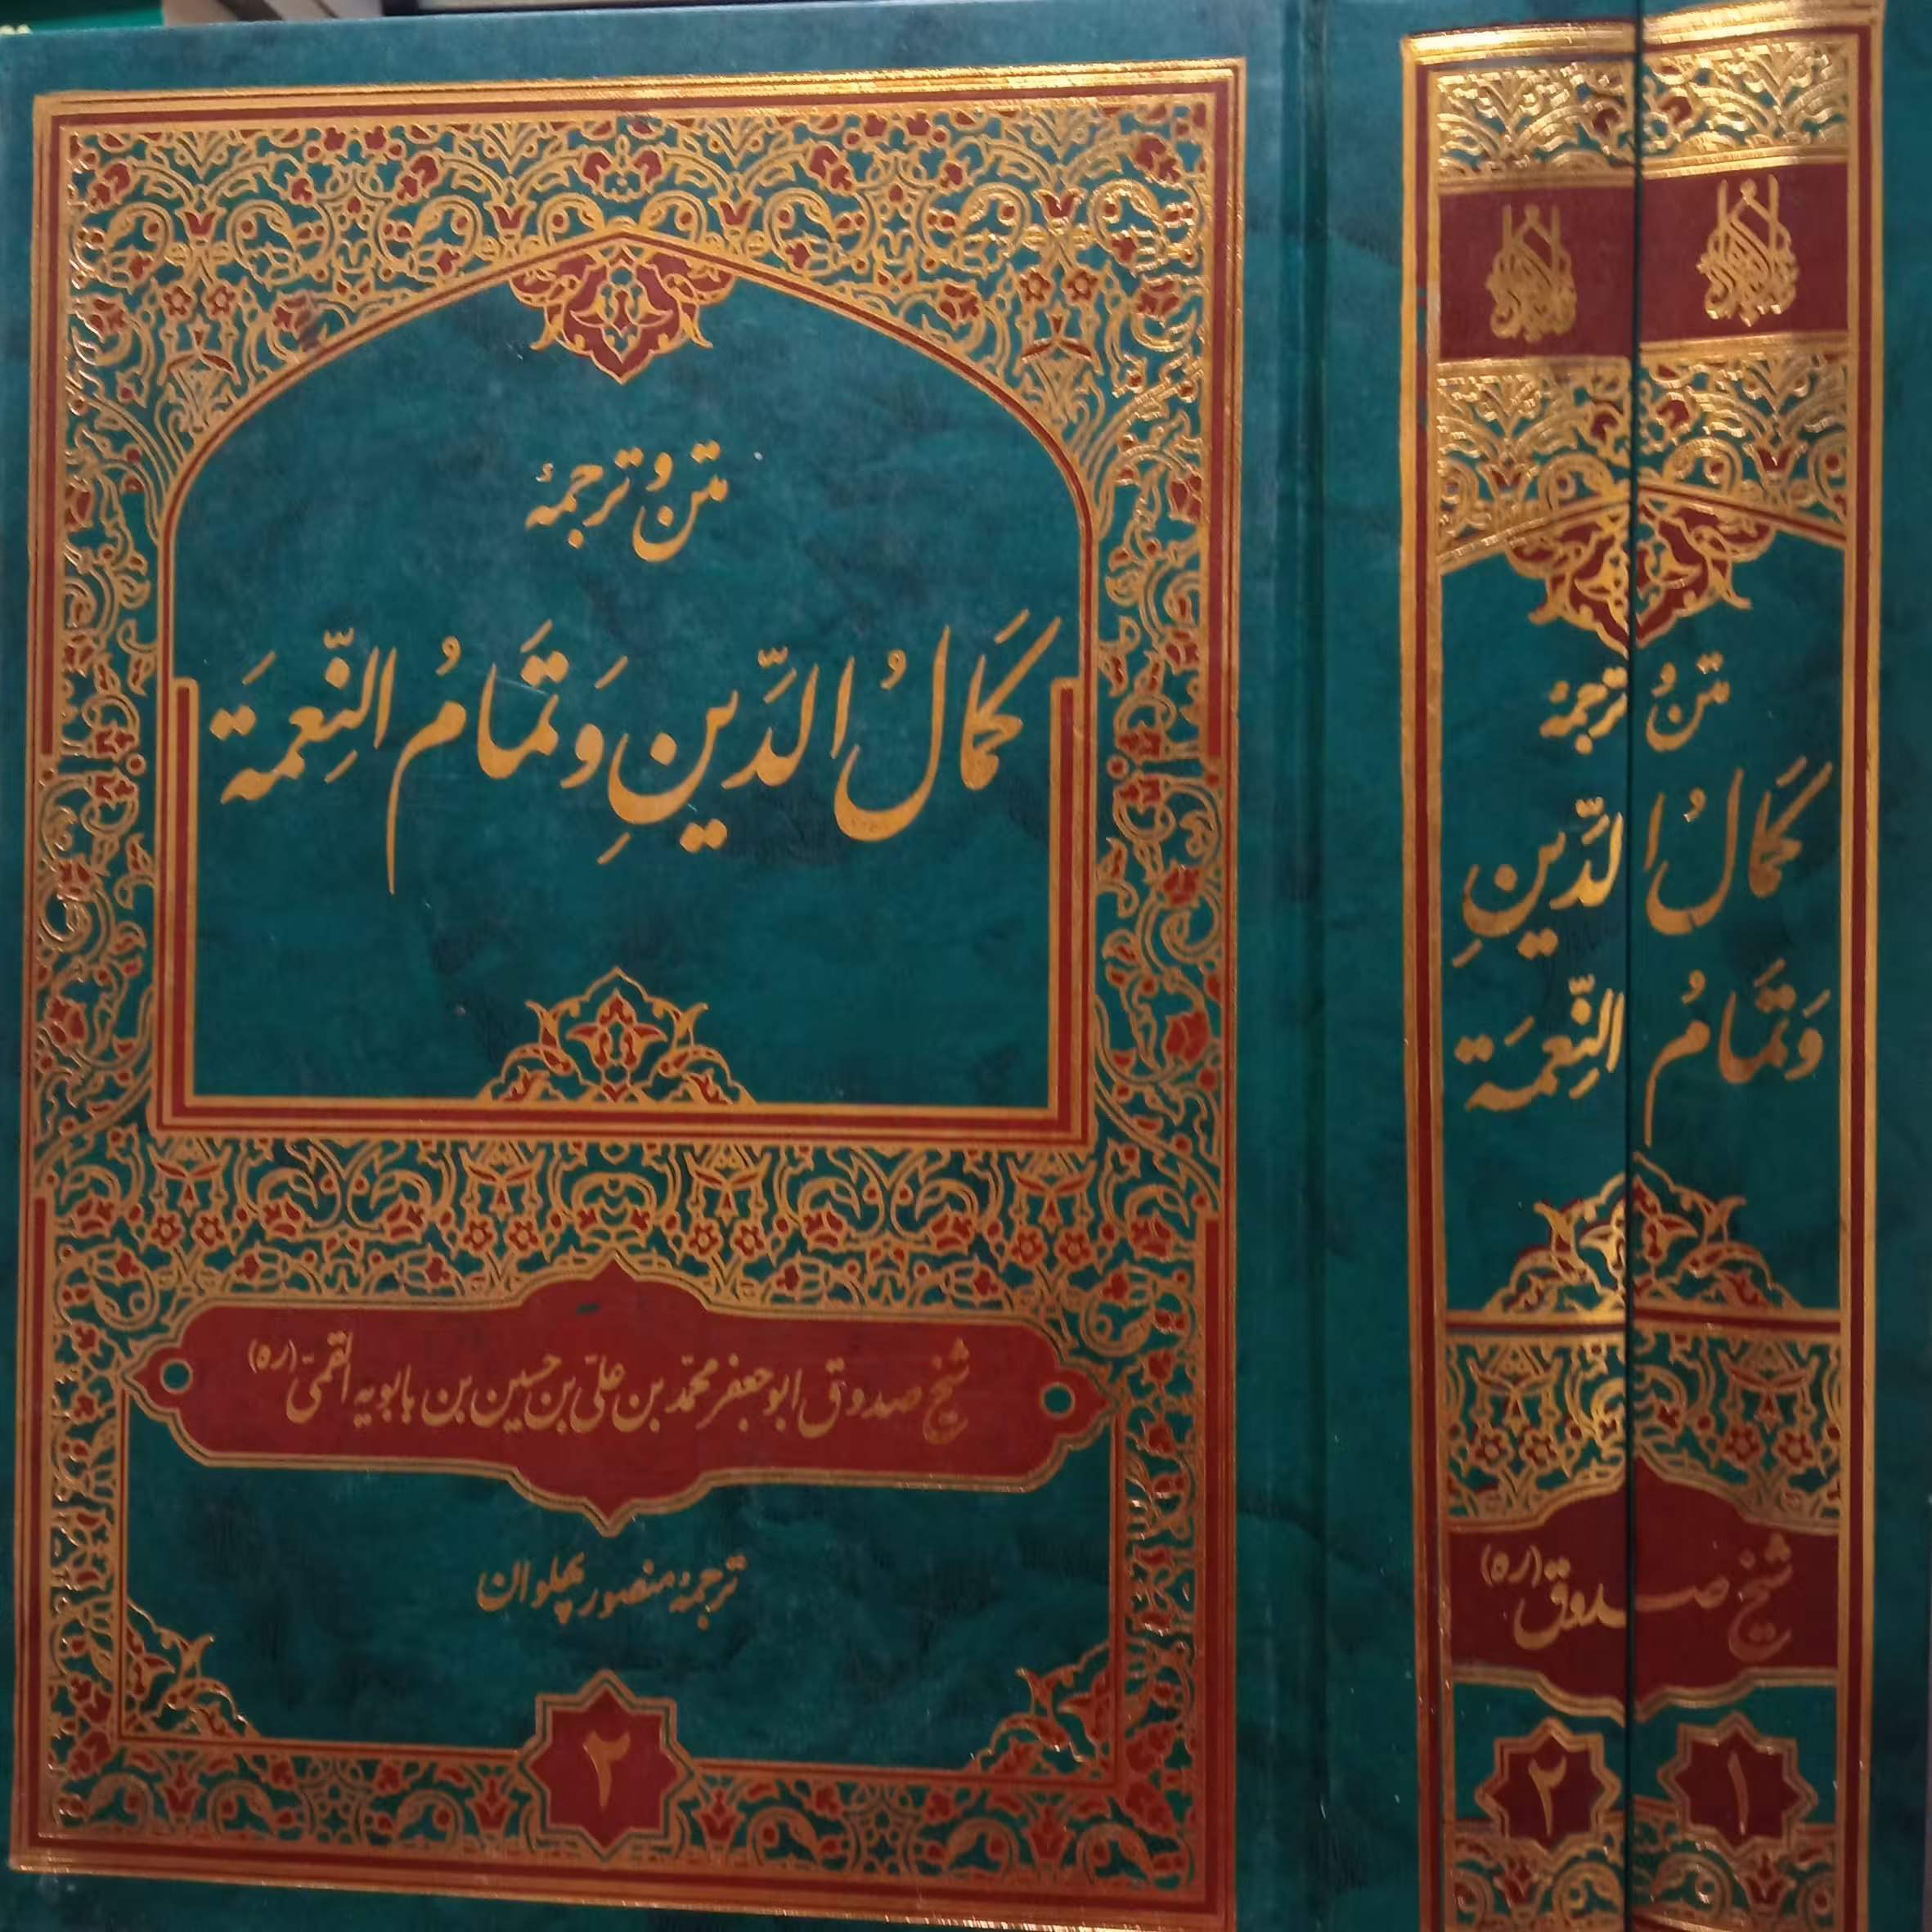 متن و ترجمهٔ
کَمَالُ الدّینِ وَ تَمَامُ النِّعمَة
شیخ صدوق ابوجعفر محمّد بن علی بن حسین بن بابویه القمّی (ره)
ترجمهٔ منصور پهلوان
۲
متن و ترجمهٔ
کَمَالُ الدّینِ
وَ تَمَامُ النِّعمَة
شیخ صدوق (ره)
۱
۲